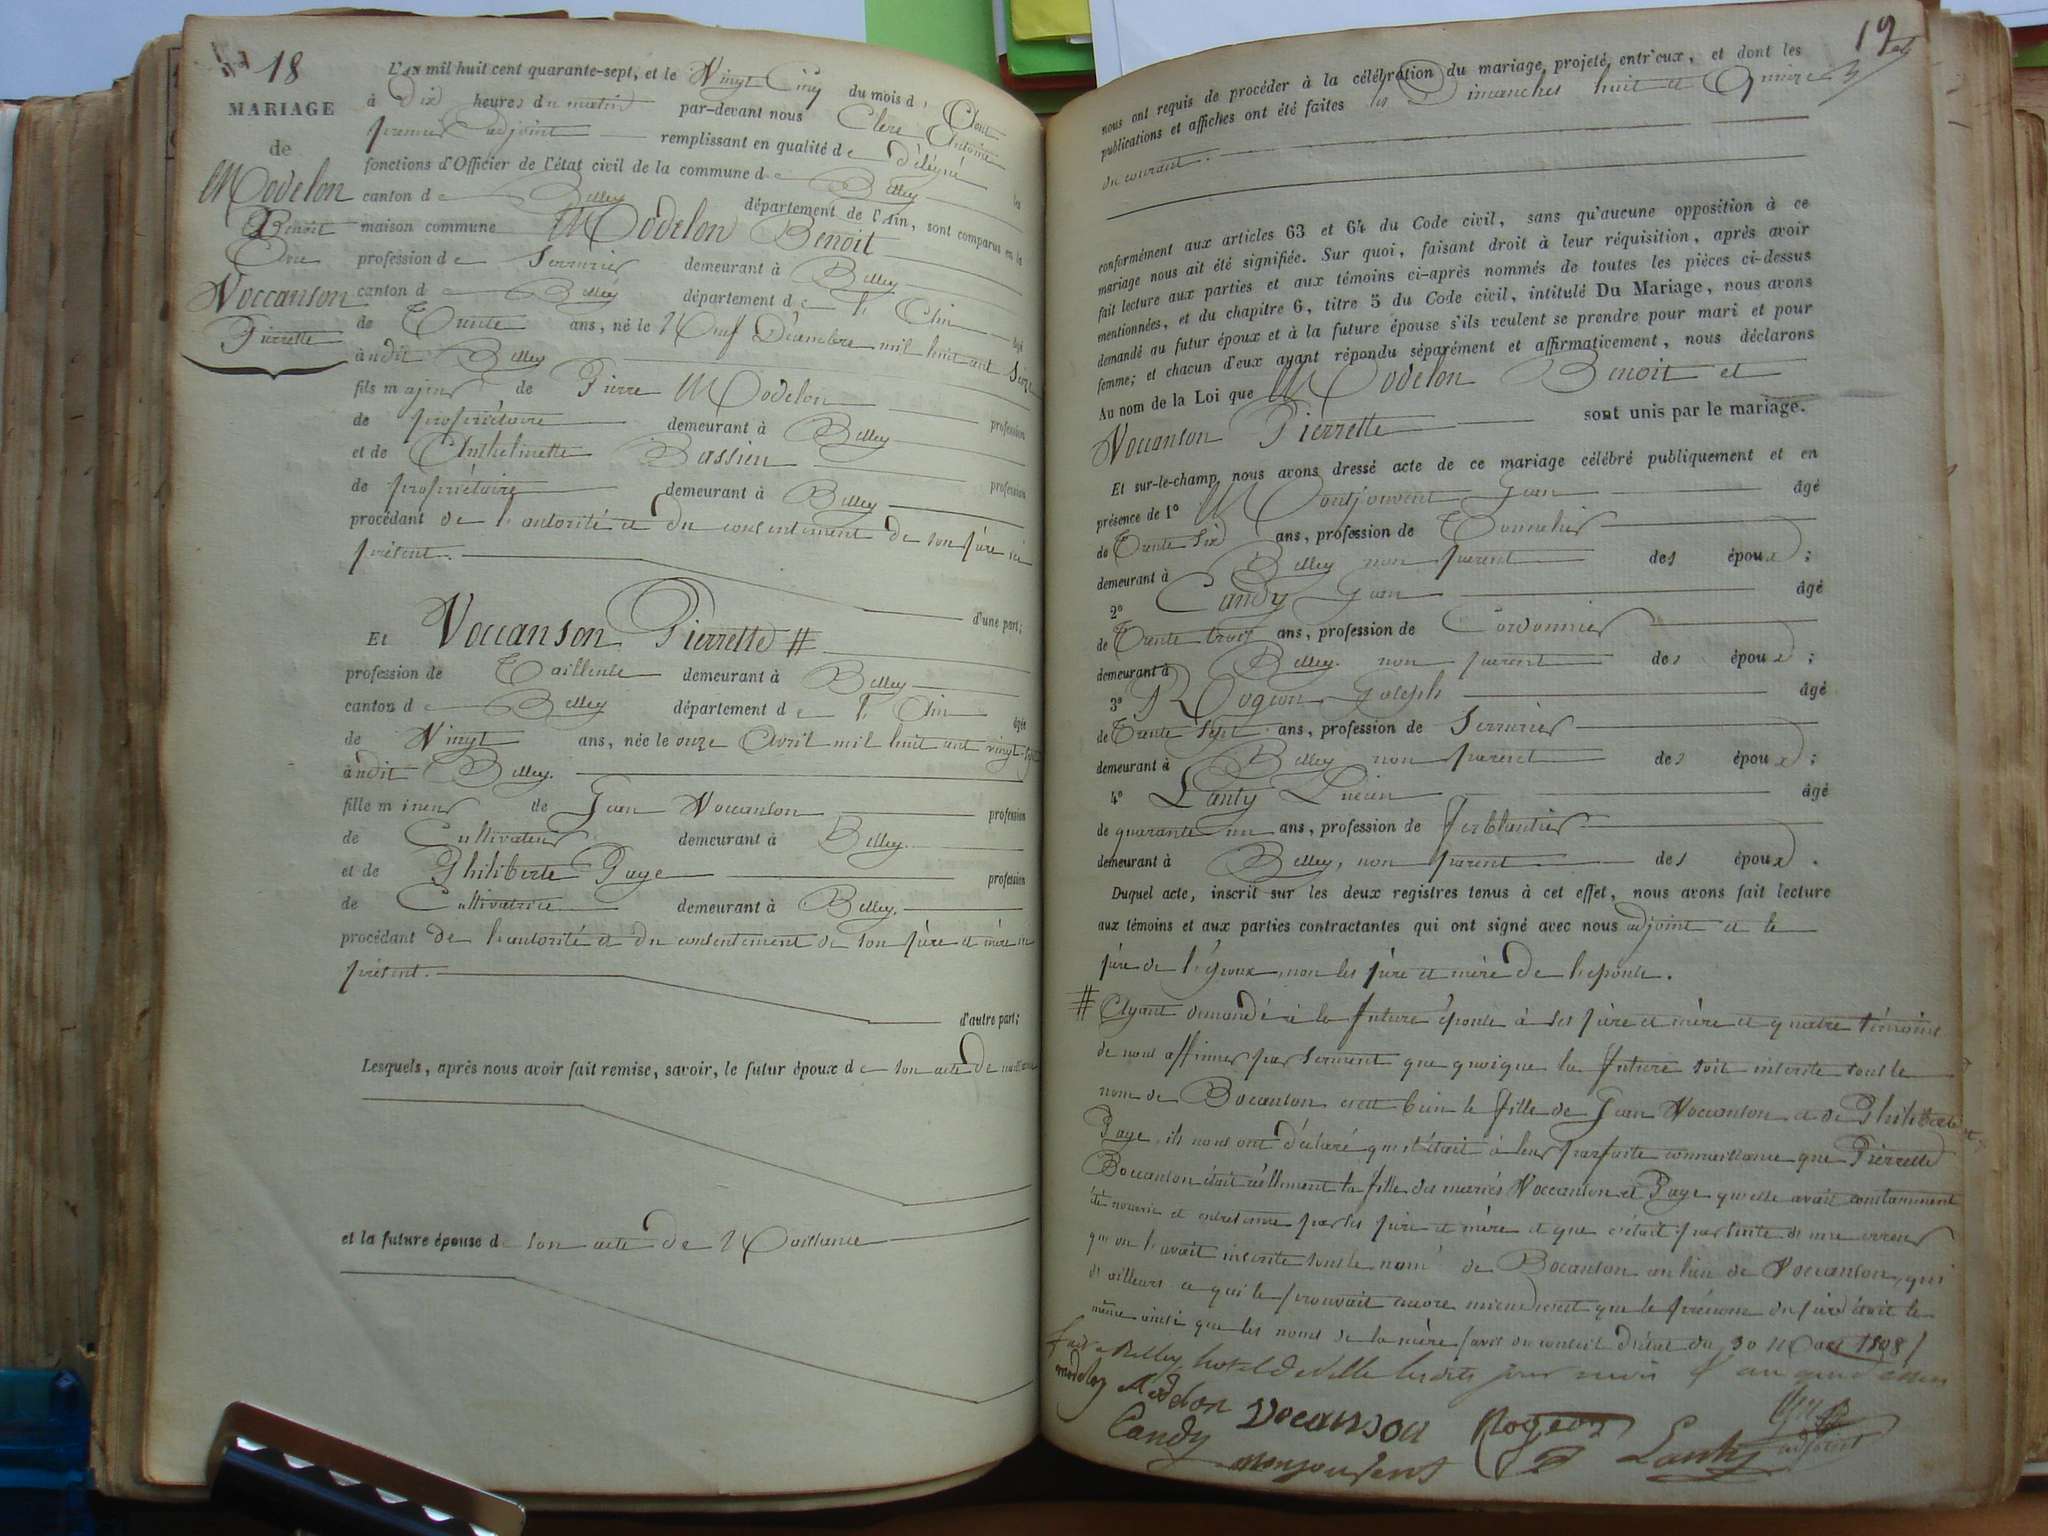 18
MARIAGE
de
Modelon
Benoit
Et
Voccanson
Pierrette
L'an mil huit cent quarante-sept, et le Vingt Cinq du mois d'Août
à Dix heures du matin par-devant nous Clerc Antoine
premier adjoint remplissant en qualité de délégué les
fonctions d'Officier de l'état civil de la commune de Belley
canton de Belley département de l'Ain, sont comparus en la
maison commune Modelon Benoit
profession de Serrurier demeurant à Belley
canton de Belley département de l'Ain âgé
de Trente ans, né le Neuf Décembre mil huit cent Seize
àudit Belley
fils majeur de Pierre Modelon profession
de propriétaire demeurant à Belley
et de Anthelmette Bassien profession
de propriétaire demeurant à Belley
procédant de l'autorité et du consentement de son père ici
présent. d'une part;
Et Voccanson Pierrette #
profession de Tailleuse demeurant à Belley
canton de Belley département de l'Ain âgée
de Vingt ans, née le onze Avril mil huit cent vingt sept
àudit Belley.
fille mineur de Jean Voccanson profession
de Cultivateur demeurant à Belley.
et de Philiberte Paye profession
de Cultivatrice demeurant à Belley.
procédant de l'autorité et du consentement de son père et mère ici
présent. d'autre part;
Lesquels, après nous avoir fait remise, savoir, le futur époux de son acte de naissance
et la future épouse de son acte de Naissance
19
nous ont requis de procéder à la célébration du mariage projeté entr'eux, et dont les
publications et affiches ont été faites les Dimanches huit et Quinze
du courant.
conformément aux articles 63 et 64 du Code civil, sans qu'aucune opposition à ce
mariage nous ait été signifiée. Sur quoi, faisant droit à leur réquisition, après avoir
fait lecture aux parties et aux témoins ci-après nommés de toutes les pièces ci-dessus
mentionnées, et du chapitre 6, titre 5 du Code civil, intitulé Du Mariage, nous avons
demandé au futur époux et à la future épouse s'ils veulent se prendre pour mari et pour
femme; et chacun d'eux ayant répondu séparément et affirmativement, nous déclarons
Au nom de la Loi que Modelon Benoit et
Voccanson Pierrette sont unis par le mariage.
Et sur-le-champ nous avons dressé acte de ce mariage célébré publiquement et en
présence de 1° Montjouvent Jean âgé
de Trente Six ans, profession de Tonnelier
demeurant à Belley non parent des époux;
2° Candy Jean âgé
de Trente trois ans, profession de Cordonnier
demeurant à Belley. non parent des époux;
3° Rogeon Joseph âgé
de Trente Sept ans, profession de Serrurier
demeurant à Belley non parent des époux;
4° Lanty Lucien âgé
de quarante un ans, profession de ferblantier
demeurant à Belley, non parent des époux.
Duquel acte, inscrit sur les deux registres tenus à cet effet, nous avons fait lecture
aux témoins et aux parties contractantes qui ont signé avec nous adjoint et le
père de l'époux, non les père et mère de l'épouse.
# Ayant demandé à la future épouse à ses père et mère et quatre témoins
de nous affirmer par serment que quoique la future soit inscrite sous le
nom de Bocanson c'est bien la fille de Jean Voccanson et de Philiberte
Paye, ils nous ont déclaré qu'il était à leur parfaite connaissance que Pierrette
Boccanson était réellement la fille des mariés Voccanson et Paye qu'elle avait constamment
été nourrie et entretenue par ses père et mère et que c'était par suite d'une erreur
qu'on l'avait inscrite sous le nom de Bocanson au lieu de Voccanson, qui
d'ailleurs ce qui le prouvait encore mieux c'est que le prénom du père était le
même ainsi que les noms de la mère (avis du conseil d'état du 30 Mars 1808)
fait à Belley, hotel de ville lesdits jour mois et an que dessus
modelon Modelon Vocanson Rogeon
Candy monjouvent Lanty adjoint